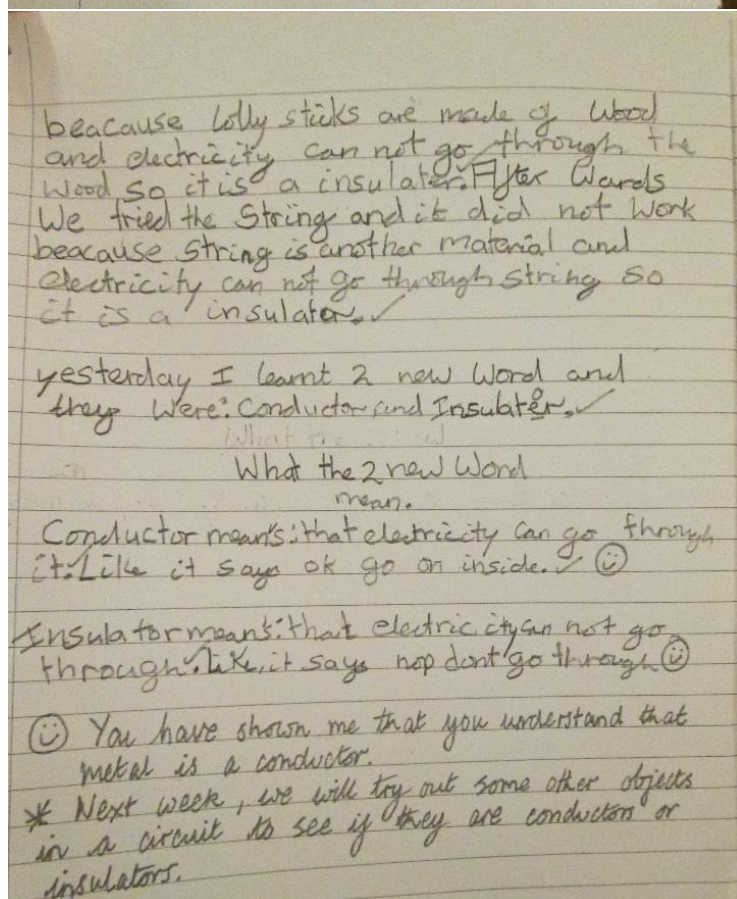 beacause Lolly sticks are made of Wood
and electricity can not go through the
Wood so it is a insulater. After Wards
We tried the String and it did not Work
beacause String is another material and
electricity can not go through string so
it is a insulator.
yesterday I learnt 2 new Word and
they Were: Conductor and Insulater.
What the
What the 2 new Word
mean.
Conductor means: that electricity can go through
it. Like it says ok go on inside.
Insulator means: that electricity can not go
through. Like, it says nop dont go through
You have shown me that you understand that
metal is a conductor.
* Next week, we will try out some other objects
in a circuit to see if they are conductors or
insulators.